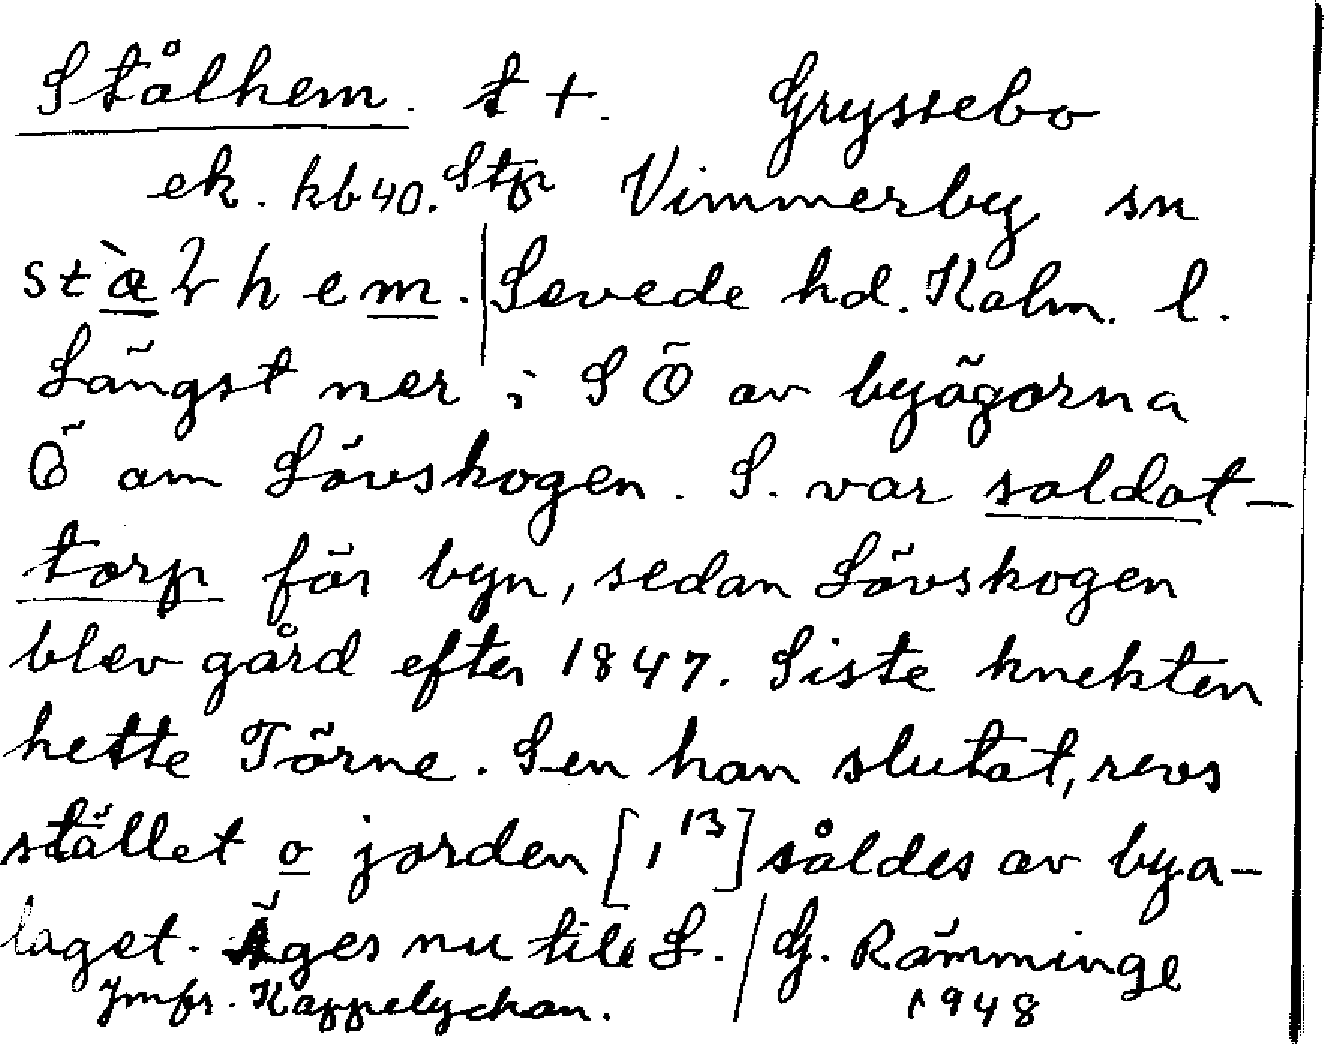 Stålhem. t +. Gryssebo
ek. kb 40. Stp Vimmerby sn
stàlhem. | Sevede hd. Kalm. l.
Längst ner i S Ö av byägorna
Ö om Lövskogen. S. var soldat-
torp för byn, sedan Lövskogen
blev gård efter 1847. Siste knekten
hette Törne. Sen han slutat, revs
stället o jorden [, 13] såldes av bya-
laget. Äges nu till L. / G. Rämminge
Jmfr. Kappelyckan. 1948